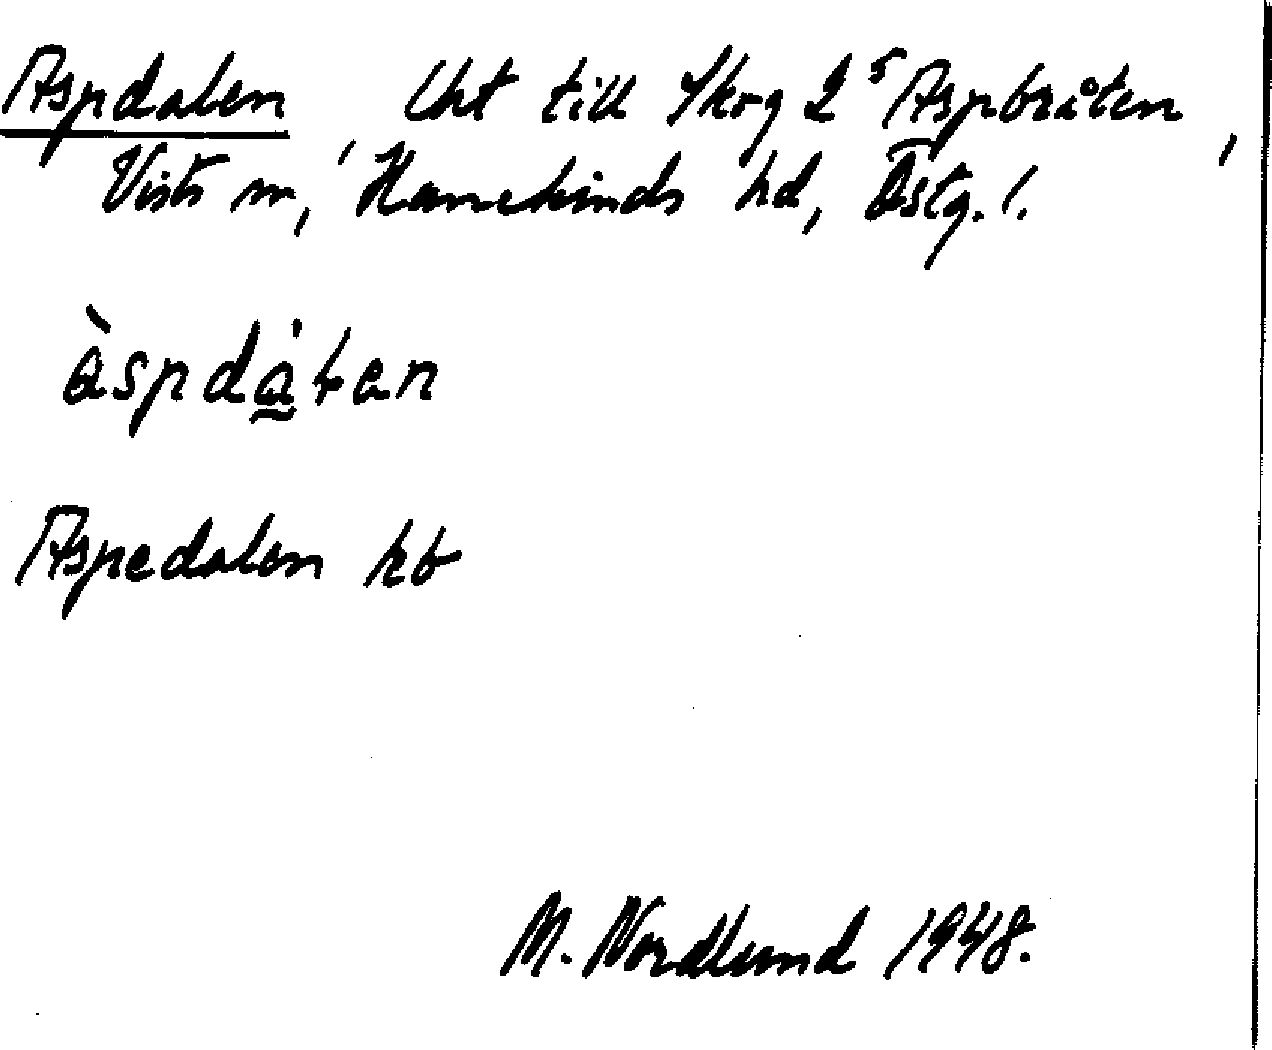 Aspdalen, Lht till Skog 2⁵ Aspbråten,
Vists sn, Hanekinds hd, Östg. l.
àspdɑ̀̇ƚan
Aspedalen kb
M. Nordlund 1948.